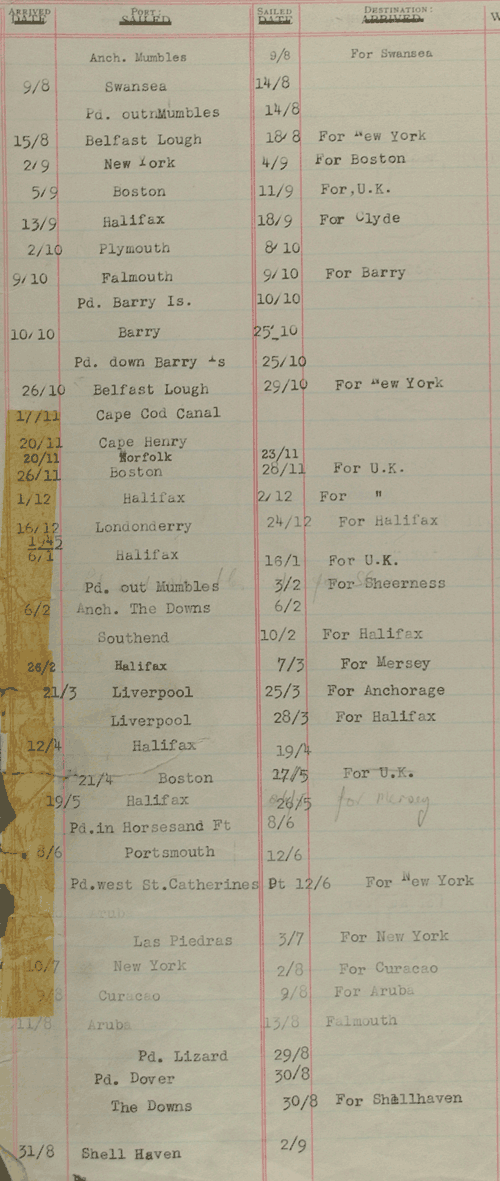 ARRIVED DATE PORT: SAILED SAILED DATE DESTINATION: ARRIVED
Anch. Mumbles 9/8 For Swansea
9/8 Swansea 14/8
Pd. outnMumbles 14/8
15/8 Belfast Lough 18/8 For New York
2/9 New York 4/9 For Boston
5/9 Boston 11/9 For,U.K.
13/9 Halifax 18/9 For Clyde
2/10 Plymouth 8/10
9/10 Falmouth 9/10 For Barry
Pd. Barry Is. 10/10
10/10 Barry 25/10
Pd. down Barry Is 25/10
26/10 Belfast Lough 29/10 For New York
17/11 Cape Cod Canal
20/11 Cape Henry
20/11 Norfolk 23/11
26/11 Boston 28/11 For U.K.
1/12 Halifax 2/12 For "
16/12 Londonderry 24/12 For Halifax
1945
6/1 Halifax 16/1 For U.K.
Pd. out Mumbles 3/2 For Sheerness
6/2 Anch. The Downs 6/2
Southend 10/2 For Halifax
26/2 Halifax 7/3 For Mersey
21/3 Liverpool 25/3 For Anchorage
Liverpool 28/3 For Halifax
12/4 Halifax 19/4
21/4 Boston 17/5 For U.K.
19/5 Halifax 26/5 for Mersey
Pd.in Horsesand Ft 8/6
8/6 Portsmouth 12/6
Pd.west St.Catherines Pt 12/6 For New York
Aruba
Las Piedras 3/7 For New York
10/7 New York 2/8 For Curacao
9/8 Curacao 9/8 For Aruba
11/8 Aruba 13/8 Falmouth
Pd. Lizard 29/8
Pd. Dover 30/8
The Downs 30/8 For Shellhaven
31/8 Shell Haven 2/9